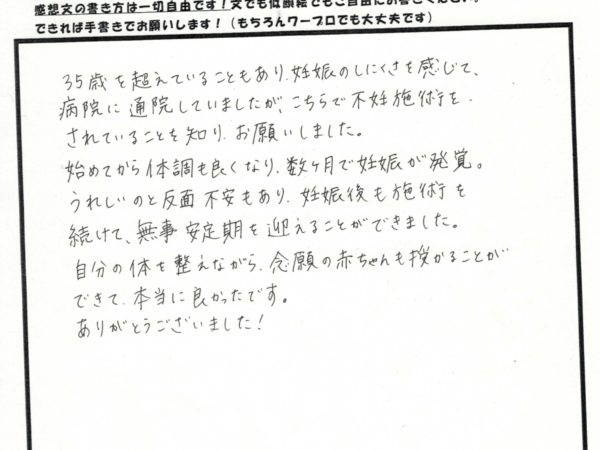 感想文の書き方は一切自由です！文でも似顔絵でもご自由にお書きください。
できれば手書きでお願いします！（もちろんワープロでも大丈夫です）
35歳を超えていることもあり、妊娠のしにくさを感じて、
病院に通院していましたが、こちらで不妊施術を
されていることを知り、お願いしました。
始めてから体調も良くなり、数ヶ月で妊娠が発覚。
うれしいのと反面不安もあり、妊娠後も施術を
続けて、無事安定期を迎えることができました。
自分の体を整えながら、念願の赤ちゃんも授かることが
できて、本当に良かったです。
ありがとうございました！